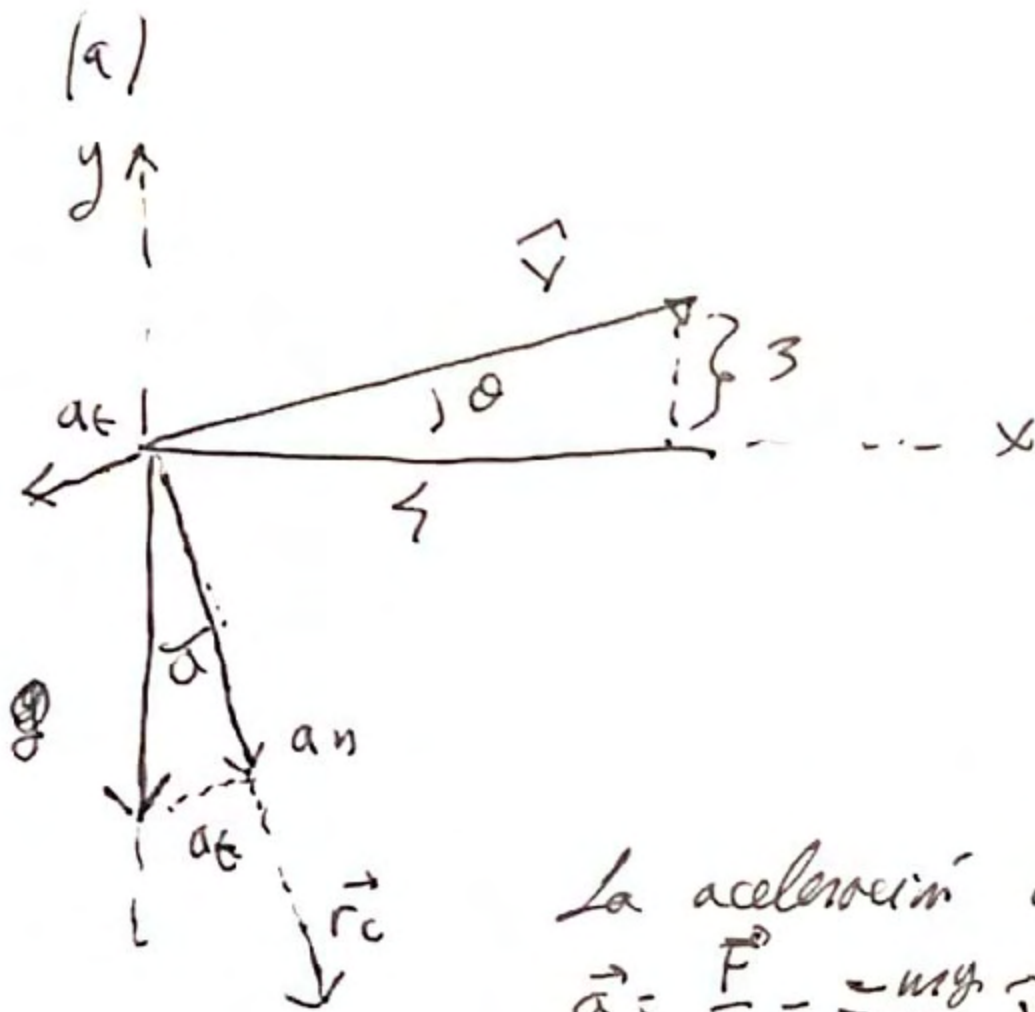 (a)
y
v
3
θ
at
x
4
g
an
at
rc
La aceleración
a = F = -mg